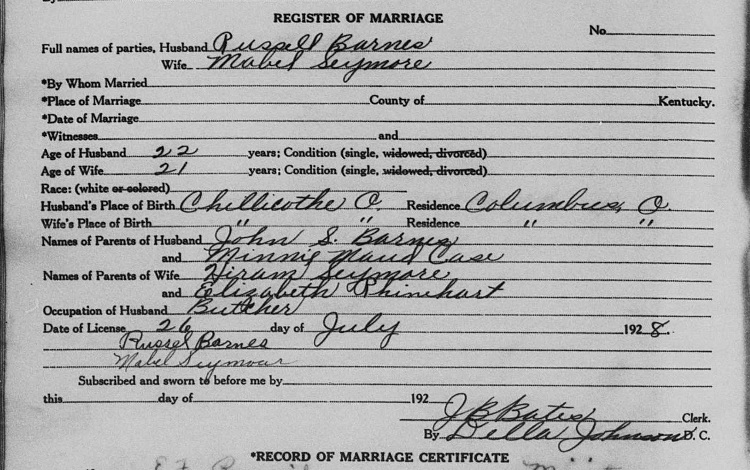 REGISTER OF MARRIAGE
No.
Full names of parties, Husband Russell Barnes
Wife Mabel Seymore
*By Whom Married
*Place of Marriage County of Kentucky.
*Date of Marriage
*Witnesses and
Age of Husband 22 years; Condition (single, widowed, divorced)
Age of Wife 21 years; Condition (single, widowed, divorced)
Race: (white or colored)
Husband's Place of Birth Chillicothe O. Residence Columbus, O.
Wife's Place of Birth " " Residence " "
Names of Parents of Husband John S. Barnes
and Minnie Maud Case
Names of Parents of Wife Hiram Seymore
and Elizabeth Rhinehart
Occupation of Husband Butcher
Date of License 26 day of July 1928.
Russel Barnes
Mabel Seymour
Subscribed and sworn to before me by
this day of 192
J B Bates Clerk.
By Della Johnson D. C.
*RECORD OF MARRIAGE CERTIFICATE